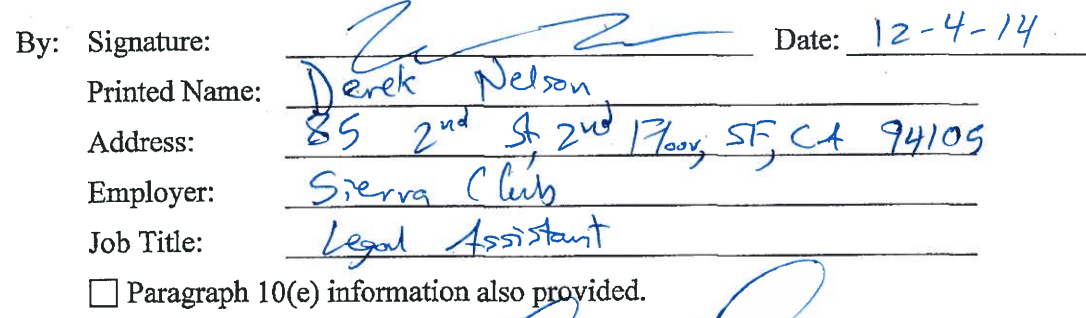 By: Signature: Date: 12-4-14
Printed Name: Derek Nelson
Address: 85 2nd St, 2nd Floor, SF, CA 94105
Employer: Sierra Club
Job Title: Legal Assistant
☐ Paragraph 10(e) information also provided.